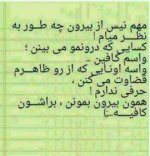 مهم نیس از بیرون چه طـور به
نظـــر میام !
کسایی که درونمو می بینن ؛
واسم کافین ...
واسه اونـایی که از رو ظاهـــرم
قضاوت می کنن ،
حرفی ندارم !
همون بیرون بمونن ، براشــون
کافیـــه..!